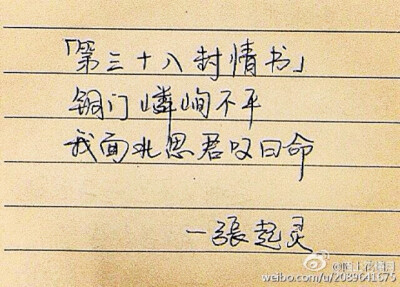 「第三十八封情书」
铜门嶙峋不平
我面北思君叹曰命
一張起灵
weibo.com/u/2089641675